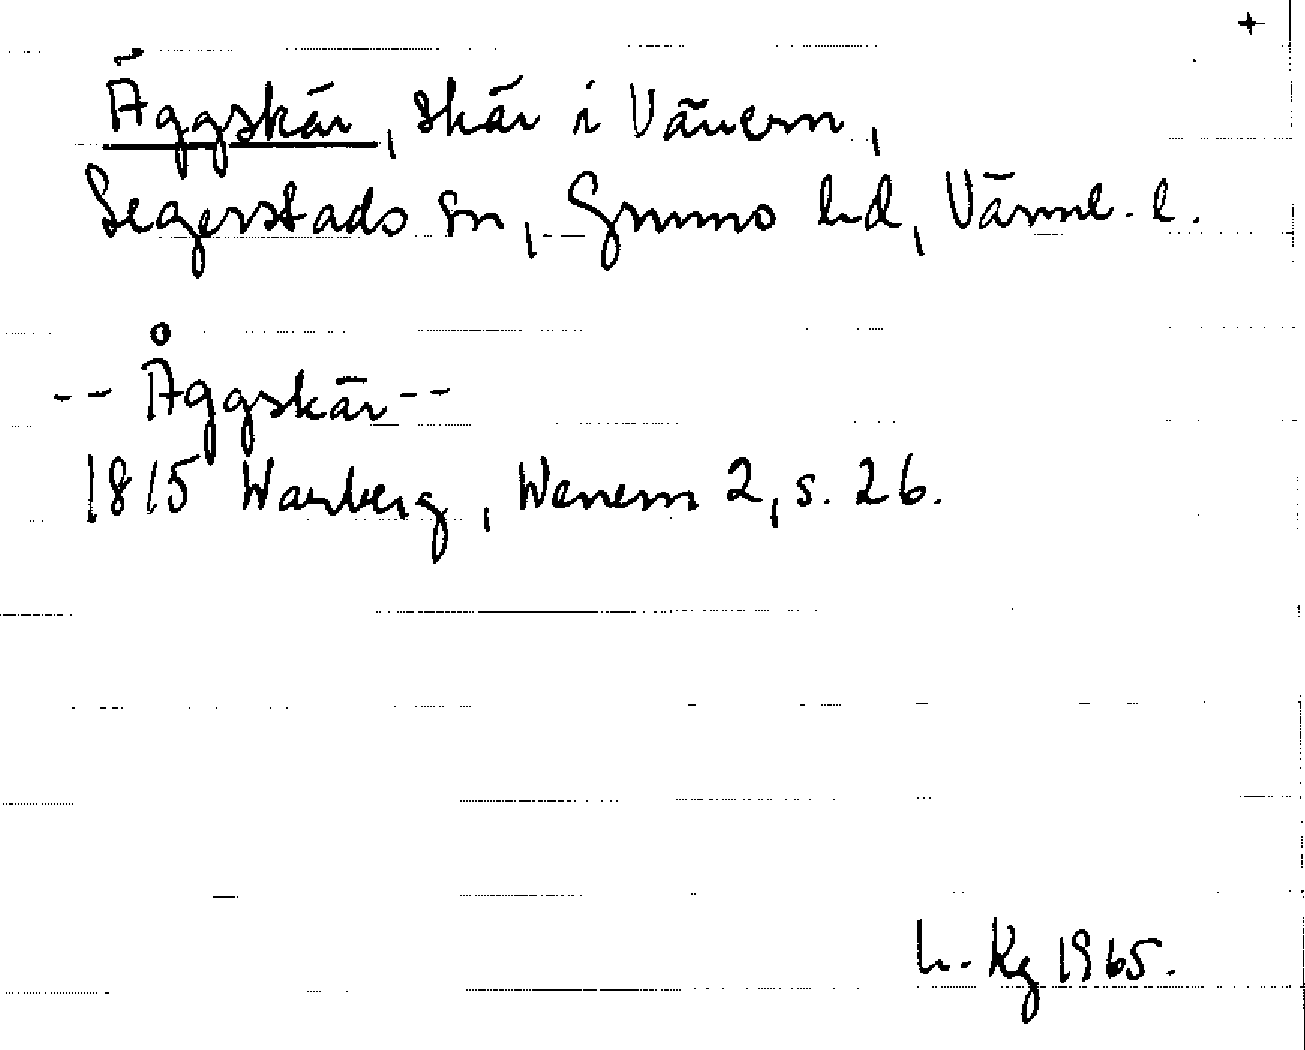 +
Äggskär, skär i Vänern,
Segerstads sn, Grums hd, Värml. l.
-- Åggskär --
1815 Warberg, Wenern 2, s. 26.
L. Kg 1965.